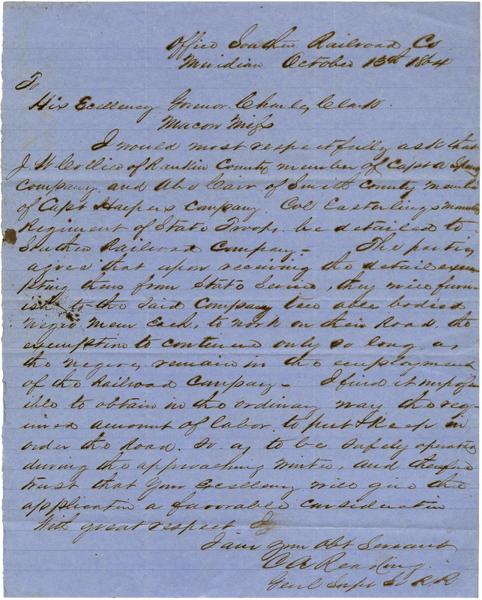 Office Southern Railroad Co
Meridian October 13th 1864
To
His Excellency Govenor Charles Clark
Macon Miss
I would most respectfully ask that
J. W. Collier of Rankin County member of Capt A
Company and Abe Carr of Smith County member
of Capt Harpers Company. Col Easterlings
Regiment of State Troops be detailed to
Southern Railroad Company - The parties
agree that upon receiving the detail exem
pting them from State Service, they will furn
ish to the said Company two able bodied
negro men each, to work on their Road, the
exemption to continue only so long as
the negroes remain in the employment
of the Railroad Company - I find it impos
ible to obtain in the ordinary way the req
uired amount of labor to put & keep in
order the Road. So as to be safely operated
during the approaching winter, and therefore
trust that Your Excellency will give the
application a favorable consideration
With great respect
I am Your Obt Servant
C A Reading
Genl Supt S. R. R